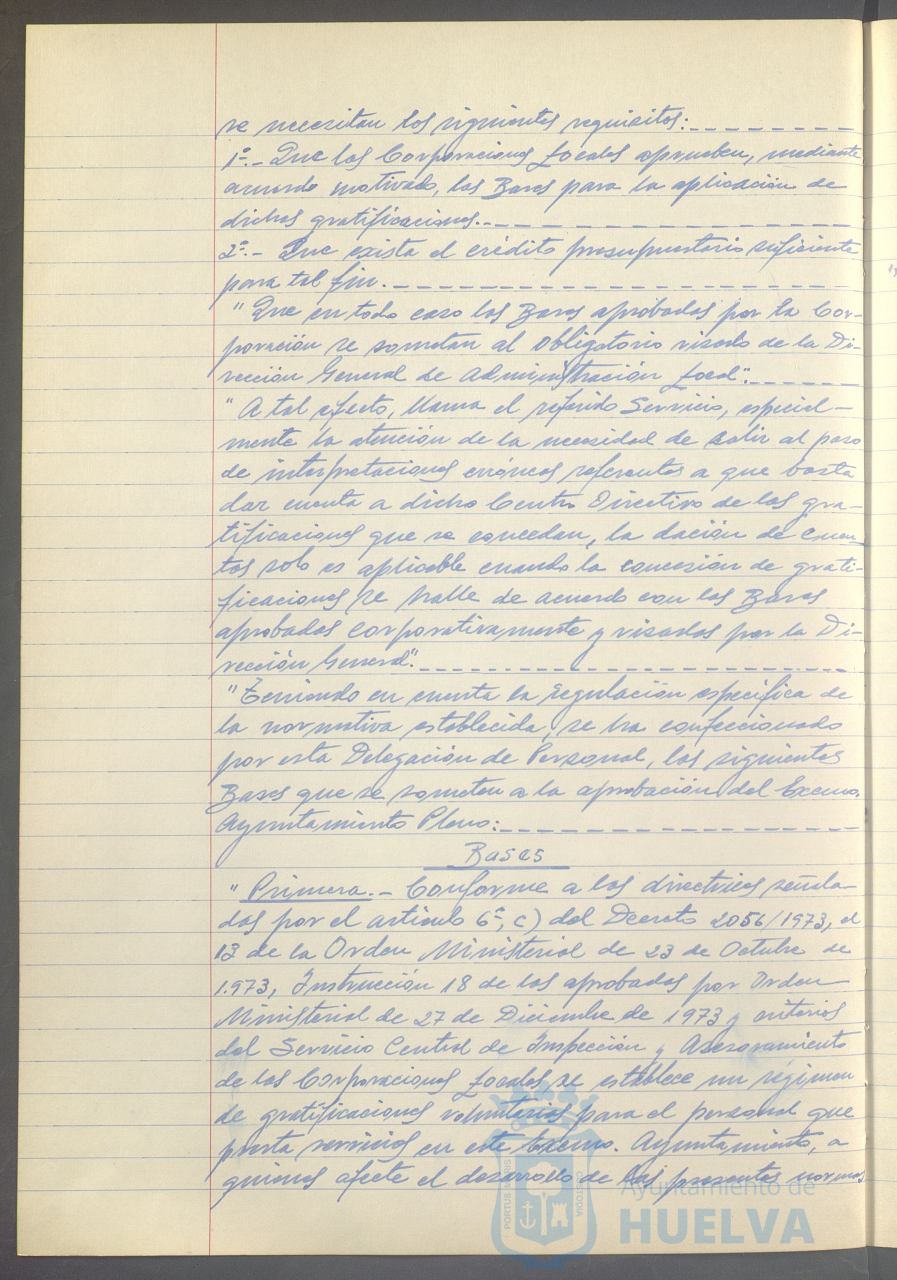 se necesitan los siguientes requisitos:
1º.- Que las Corporaciones Locales aprueben, mediante
acuerdo motivado, las Bases para la aplicación de
dichas gratificaciones.-
2º.- Que exista el crédito presupuestario suficiente
para tal fin.
"Que en todo caso las Bases aprobadas por la Cor-
poración se sometan al obligatorio visado de la Di-
rección General de Administración Local".
"A tal efecto, llama el referido Servicio, especial-
mente la atención de la necesidad de salir al paso
de interpretaciones erróneas referentes a que basta
dar cuenta a dicho Centro Directivo de las gra-
tificaciones que se concedan, la dación de cuen-
tas solo es aplicable cuando la concesión de grati-
ficaciones se halle de acuerdo con las Bases
aprobadas corporativamente y visadas por la Di-
rección General".
"Teniendo en cuenta la regulación específica de
la normativa establecida, se ha confeccionado
por esta Delegación de Personal, las siguientes
Bases que se someten a la aprobación del Excmo.
Ayuntamiento Pleno:
Bases
"Primera.- Conforme a las directrices señala-
das por el artículo 6º, c) del Decreto 2056/1973, el
13 de la Orden Ministerial de 23 de Octubre de
1.973, Instrucción 18 de las aprobadas por Orden
Ministerial de 27 de Diciembre de 1973 y criterios
del Servicio Central de Inspección y Asesoramiento
de las Corporaciones Locales se establece un régimen
de gratificaciones voluntarias para el personal que
presta servicios en este Excmo. Ayuntamiento, a
quienes afecte el desarrollo de las presentes normas
PORTUS MARIS
CUSTODIA
Ayuntamiento de
HUELVA